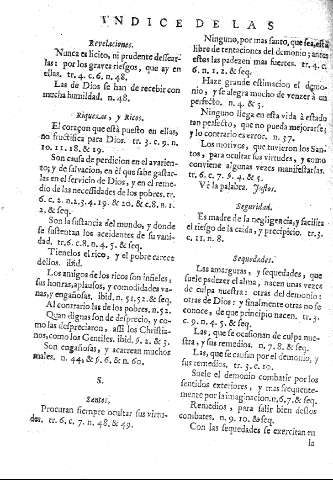 INDICE DE LAS
Revelaciones.
Nunca es licito, ni prudente dessear-
las: por los graves riesgos, que ay en
ellas. tr. 4. c. 6. n. 48.
Las de Dios se han de recibir con
mucha humildad. n. 48.
Riquezas, y Ricos.
El coraçon que està puesto en ellas,
no fructifica para Dios. tr. 3. c. 9. n.
10. 11. 18. & 19.
Son causa de perdicion en el avarien-
to; y de salvacion, en èl que sabe gastar-
las en el servicio de Dios, y en el reme-
dio de las necessidades de los pobres. tr.
6. c. 2. n. 2. 3. 4. 19. & 20. & c. 8. n. 1.
2. & seq.
Son la sustancia del mundo, y donde
se sustentan los accidentes de su vani-
dad. tr. 6. c. 8. n. 4. 5. & seq.
Tienelos el rico, y el pobre carece
dellos. ibid.
Los amigos de los ricos son infieles;
sus honras, aplausos, y comodidades va-
nas, y engañosas. ibid. n. 51. 52. & seq.
Al contrario las de los pobres, n. 52.
Quan dignas son de desprecio, y co-
mo las despreciaron, assi los Christia-
nos, como los Gentiles. ibid. §. 2. & 3.
Son engañosas, y acarrean muchos
males. n. 44. & §. 6. & n. 60.
S.
Santos.
Procuran siempre ocultar sus virtu-
des. tr. 6. c. 7. n. 48. & 49.
Ninguno, por mas santo, que sea, està
libre de tentaciones del demonio; antes
estas las padezen mas fuerces. tr. 4. c.
6. n. 1. 2. & seq.
Haze grande estimacion el demo-
nio, y se alegra mucho de vencer à un
perfecto. n. 4. & 5.
Ninguno llega en esta vida à estado
tan perfecto, que no pueda mejorarse;
y lo contrario es error. n. 37.
Los motivos, que tuvieron los San-
tos, para ocultar sus virtudes, y como
conviene algunas vezes manifestarlas.
tr. 6. c. 7. §. 4. & 5.
Vè la palabra. Justos.
Seguridad.
Es madre de la negligencia, y facilita
el riesgo de la caìda, y precipicio. tr. 3.
c. 11. n. 8.
Sequedades.
Las amarguras, y sequedades, que
suele padezer el alma, nacen unas vezes
de culpa nuestra: otras del demonio:
otras de Dios: y finalmente otras no se
conoce, de que principio nacen. tr. 3.
c. 9. n. 4. 5. & seq.
Las, que se ocasionan de culpa nue-
stra, y sus remedios. n. 7. 8. & seq.
Las, que se causan por el demonio, y
sus remedios. tr. 3. c. 10.
Suele el demonio combatir por los
sentidos exteriores, y mas frequente-
mente por la imaginacion. n. 6. 7. & seq.
Remedios, para salir bien destos
combates. n. 9. 10. & seq.
Con las sequedades se exercitan en
la